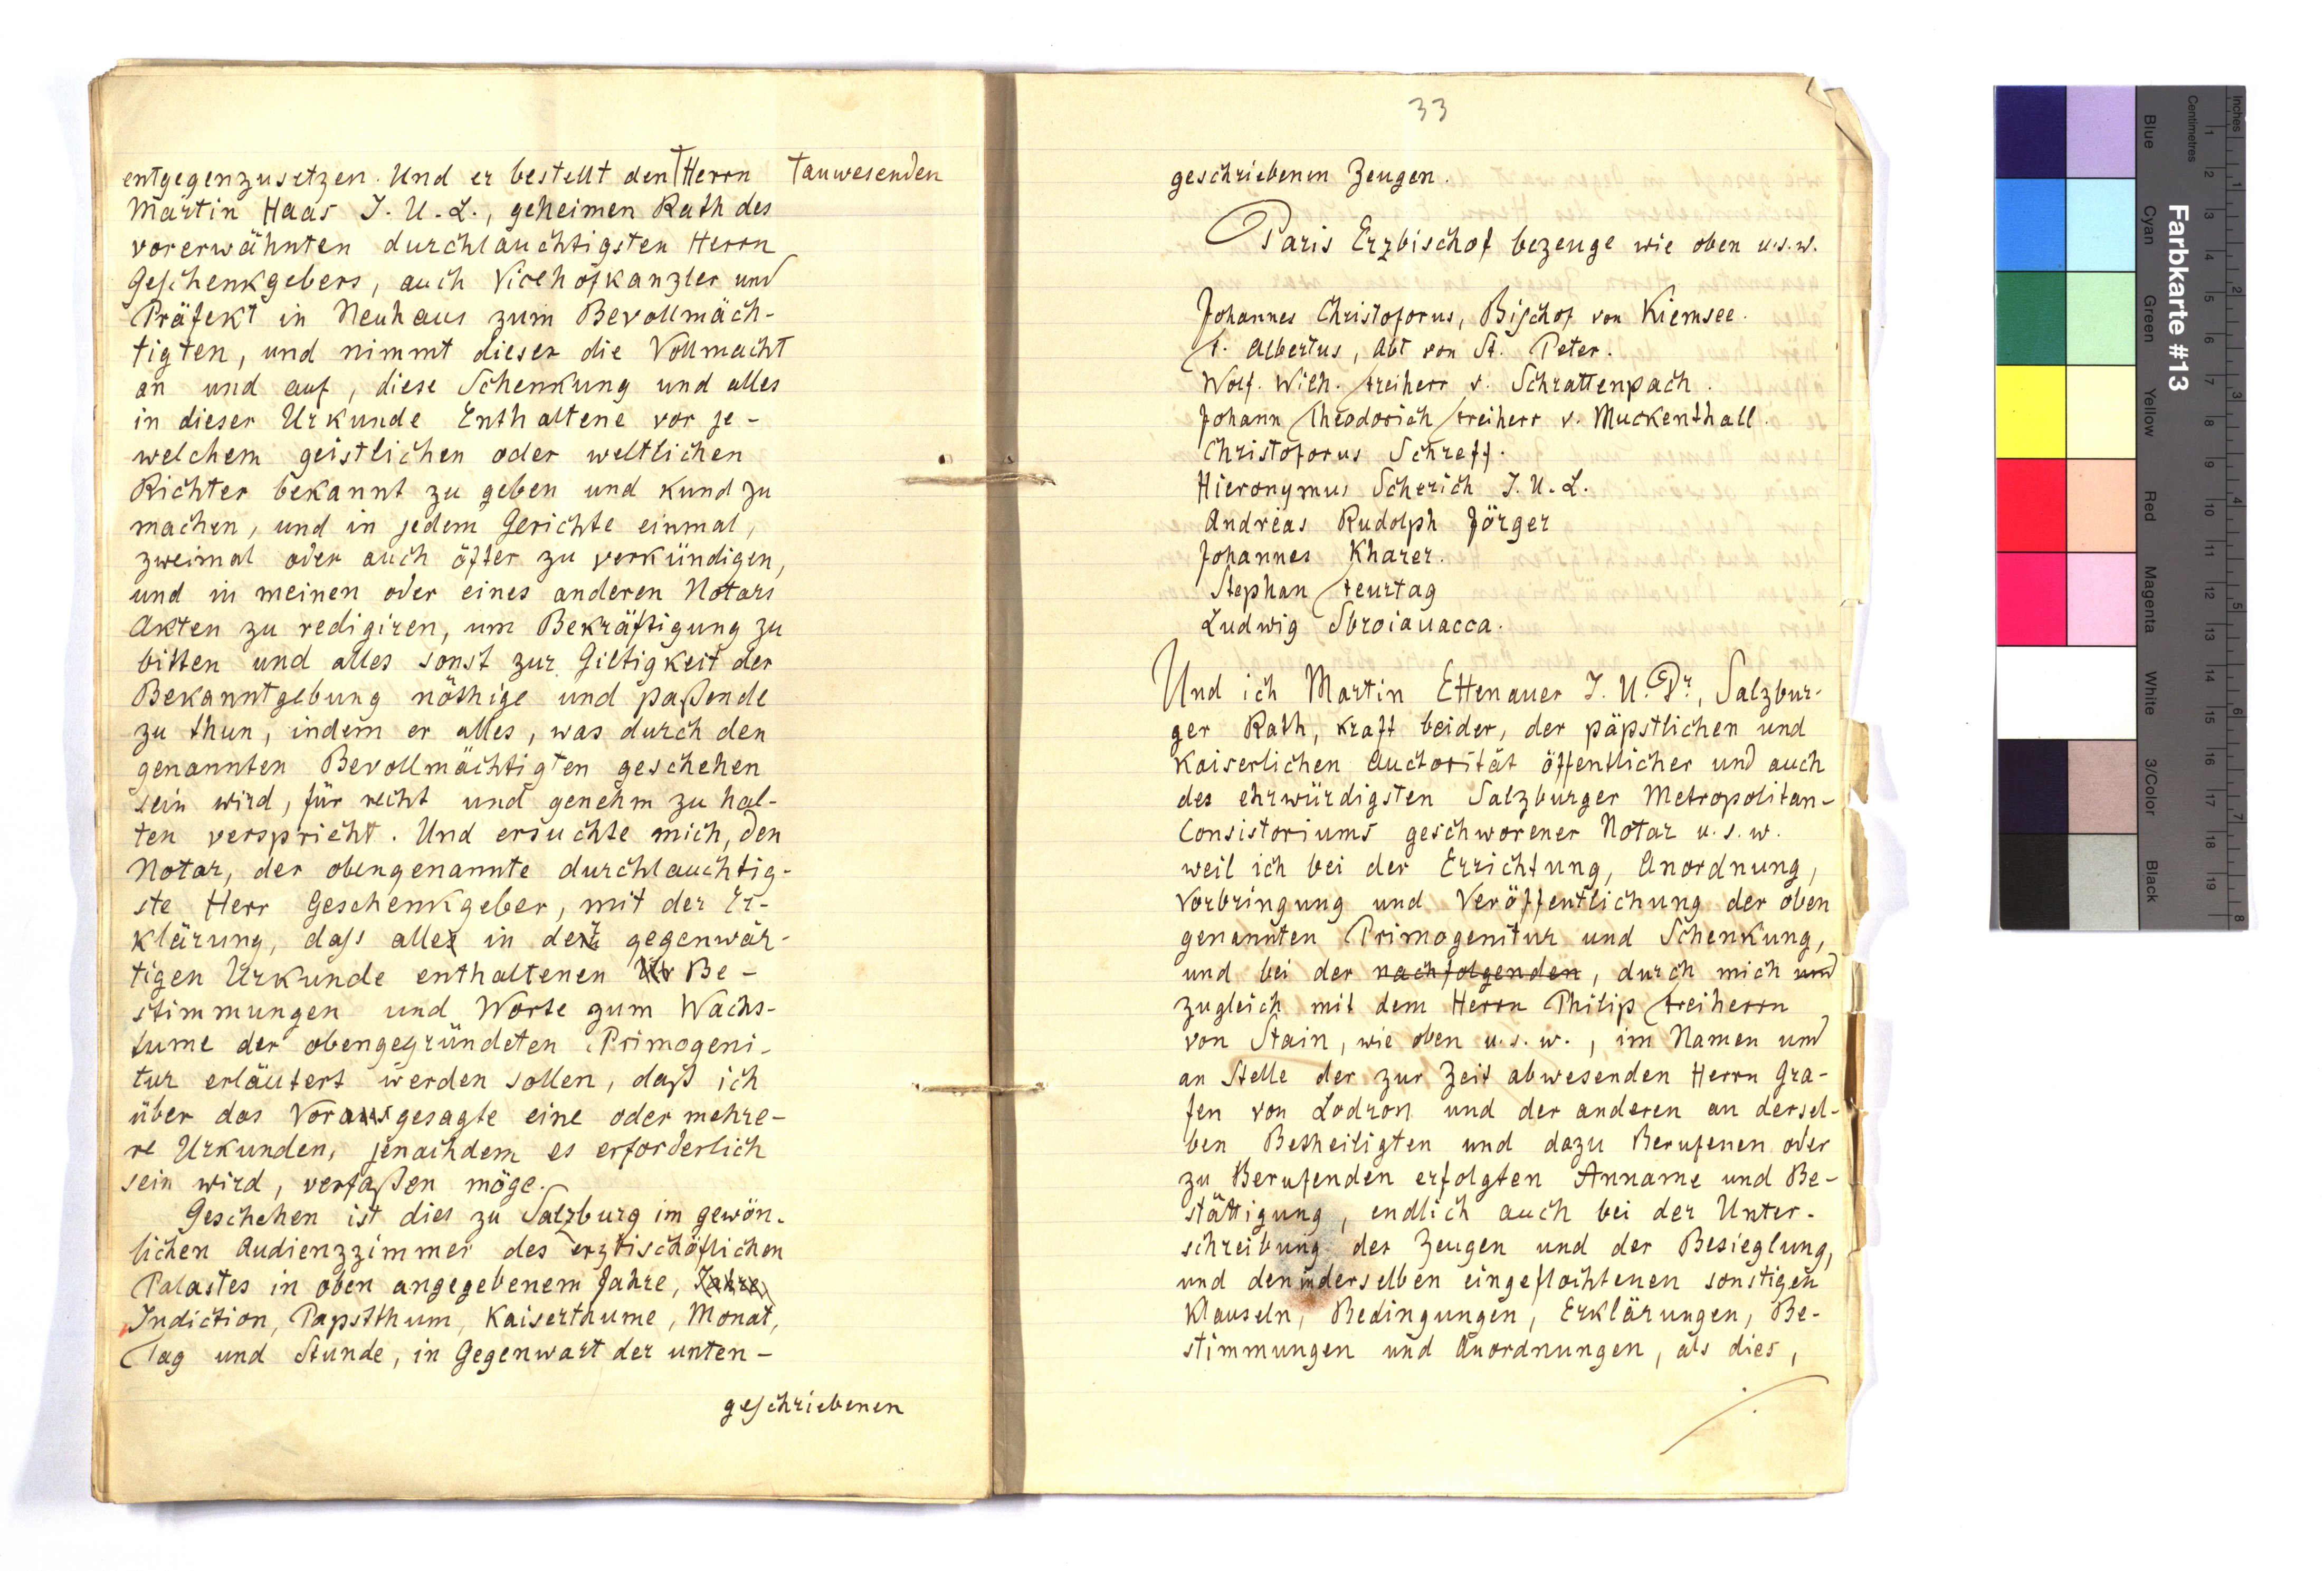 entgegenzusetzen. Und er bestellt den † Herrn † anwesenden
Martin Haas J. U. L., geheimen Rath des
vorerwähnten durchlauchtigsten Herrn
Geschenkgebers, auch Vicehofkanzler und
Präfekt in Neuhaus zum Bevollmäch-
tigten, und nimmt dieser die Vollmacht
an und auf, diese Schenkung und alles
in dieser Urkunde Enthaltene vor je-
welchem geistlichen oder weltlichen
Richter bekannt zu geben und kund zu
machen, und in jedem Gerichte einmal,
zweimal oder auch öfter zu verkündigen,
und in meinen oder eines anderen Notars
Akten zu redigiren, um Bekräftigung zu
bitten und alles sonst zur Giltigkeit der
Bekanntgebung nöthige und paßende
zu thun, indem er alles, was durch den
genannten Bevollmächtigten geschehen
sein wird, für recht und genehm zu hal-
ten verspricht. Und ersuchte mich, den
Notar, der obengenannte durchlauchtig-
ste Herr Geschenkgeber, mit der Er-
klärung, dass alle in der gegenwär-
tigen Urkunde enthaltenen Be-
stimmungen und Worte zum Wachs-
tume der obengegründeten Primogeni-
tur erläutert werden sollen, daß ich
über das Vorausgesagte eine oder mehre-
re Urkunden, jenachdem es erforderlich
sein wird, verfaßen möge.
Geschehen ist dies zu Salzburg im gewön-
lichen Audienzzimmer des erzbischöflichen
Palastes in oben angegebenem Jahre, Jahre,
Indiction, Papstthum, Kaisertaume, Monat,
Tag und Stunde, in Gegenwart der unten-
geschriebenen
33
geschriebenen Zeugen.
Paris Erzbischof bezeuge wie oben u.s.w.
Johannes Christoforus, Bischof von Kiemsee.
F. Albertus, Abt von St. Peter.
Wolf. Wilh. Freiherr v. Schrattenpach.
Johann Theodorich Freiherr v. Muckenthall.
Christoforus Schreff.
Hieronymus Scherich J. U. L.
Andreas Rudolph Jörger
Johannes Kharer.
Stephan Feurtag
Ludwig Sbroiauacca.
Und ich Martin Ettenauer J. U. Dr., Salzbur-
ger Rath, kraft beider, der päpstlichen und
kaiserlichen Auctorität öffentlicher und auch
des ehrwürdigsten Salzburger Metropolitan-
Consistoriums geschworener Notar u. s. w.
weil ich bei der Errichtung, Anordnung,
Vorbringung und Veröffentlichung der oben
genannten Primogenitur und Schenkung,
und bei der nachfolgenden, durch mich und
zugleich mit dem Herrn Philip Freiherrn
von Stain, wie oben u. s. w., im Namen und
an Stelle der zur Zeit abwesenden Herrn Gra-
fen von Lodron und der anderen an dersel-
ben Betheiligten und dazu Berufenen oder
zu Berufenden erfolgten Anname und Be-
stättigung, endlich auch bei der Unter-
schreibung der Zeugen und der Besieglung,
und den in derselben eingeflochtenen sonstigen
Klauseln, Bedingungen, Erklärungen, Be-
stimmungen und Anordnungen, als dies,
Farbkarte #13
Blue Cyan Green Yellow Red Magenta White 3/Color Black
Centimetres 1 2 3 4 5 6 7 8 9 10 11 12 13 14 15 16 17 18 19
Inches 1 2 3 4 5 6 7 8